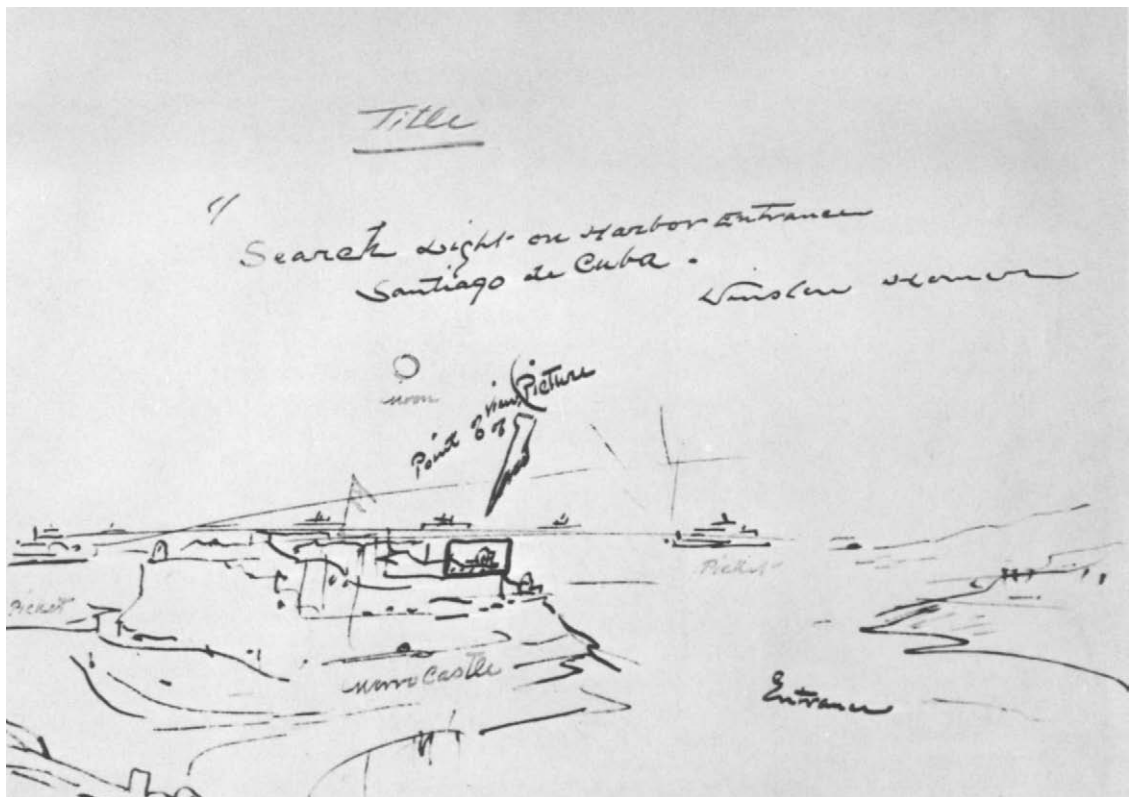 Title
"Search Light on Harbor Entrance
Santiago de Cuba.
Winslow Homer
moon
Point of view of Picture
Picket
Picket
Morro Castle
Entrance